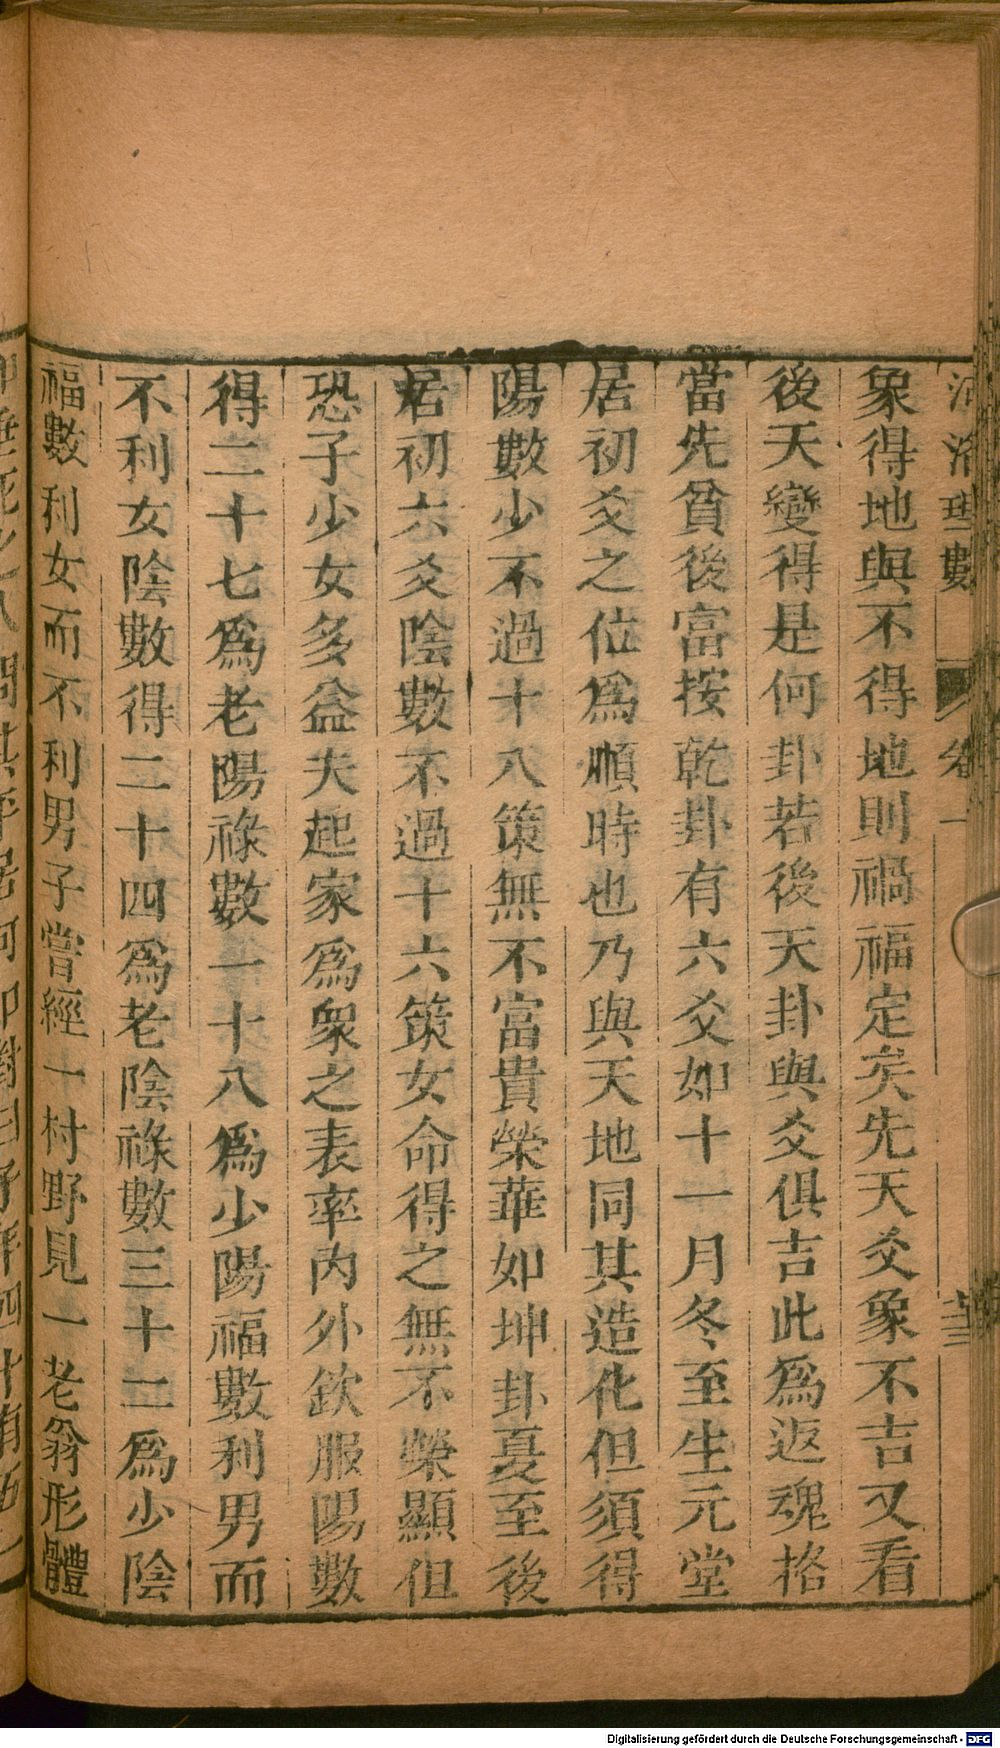 河洛理數 卷一 十三
象得地與不得地則禍福定矣先天爻象不吉又看
後天變得是何卦若後天卦與爻俱吉此為返魂格
當先貧後富按乾卦有六爻如十一月冬至生元堂
居初爻之位為順時也乃與天地同其造化但須得
陽數少不過十八策無不富貴榮華如坤卦夏至後
居初六爻陰數不過十六策女命得之無不榮顯但
恐子少女多益夫起家為衆之表率內外欽服陽數
得二十七為老陽祿數一十八為少陽福數利男而
不利女陰數得二十四為老陰祿數三十二為少陰
福數利女而不利男子嘗經一村野見一老翁形體
Digitalisierung gefördert durch die Deutsche Forschungsgemeinschaft - DFG